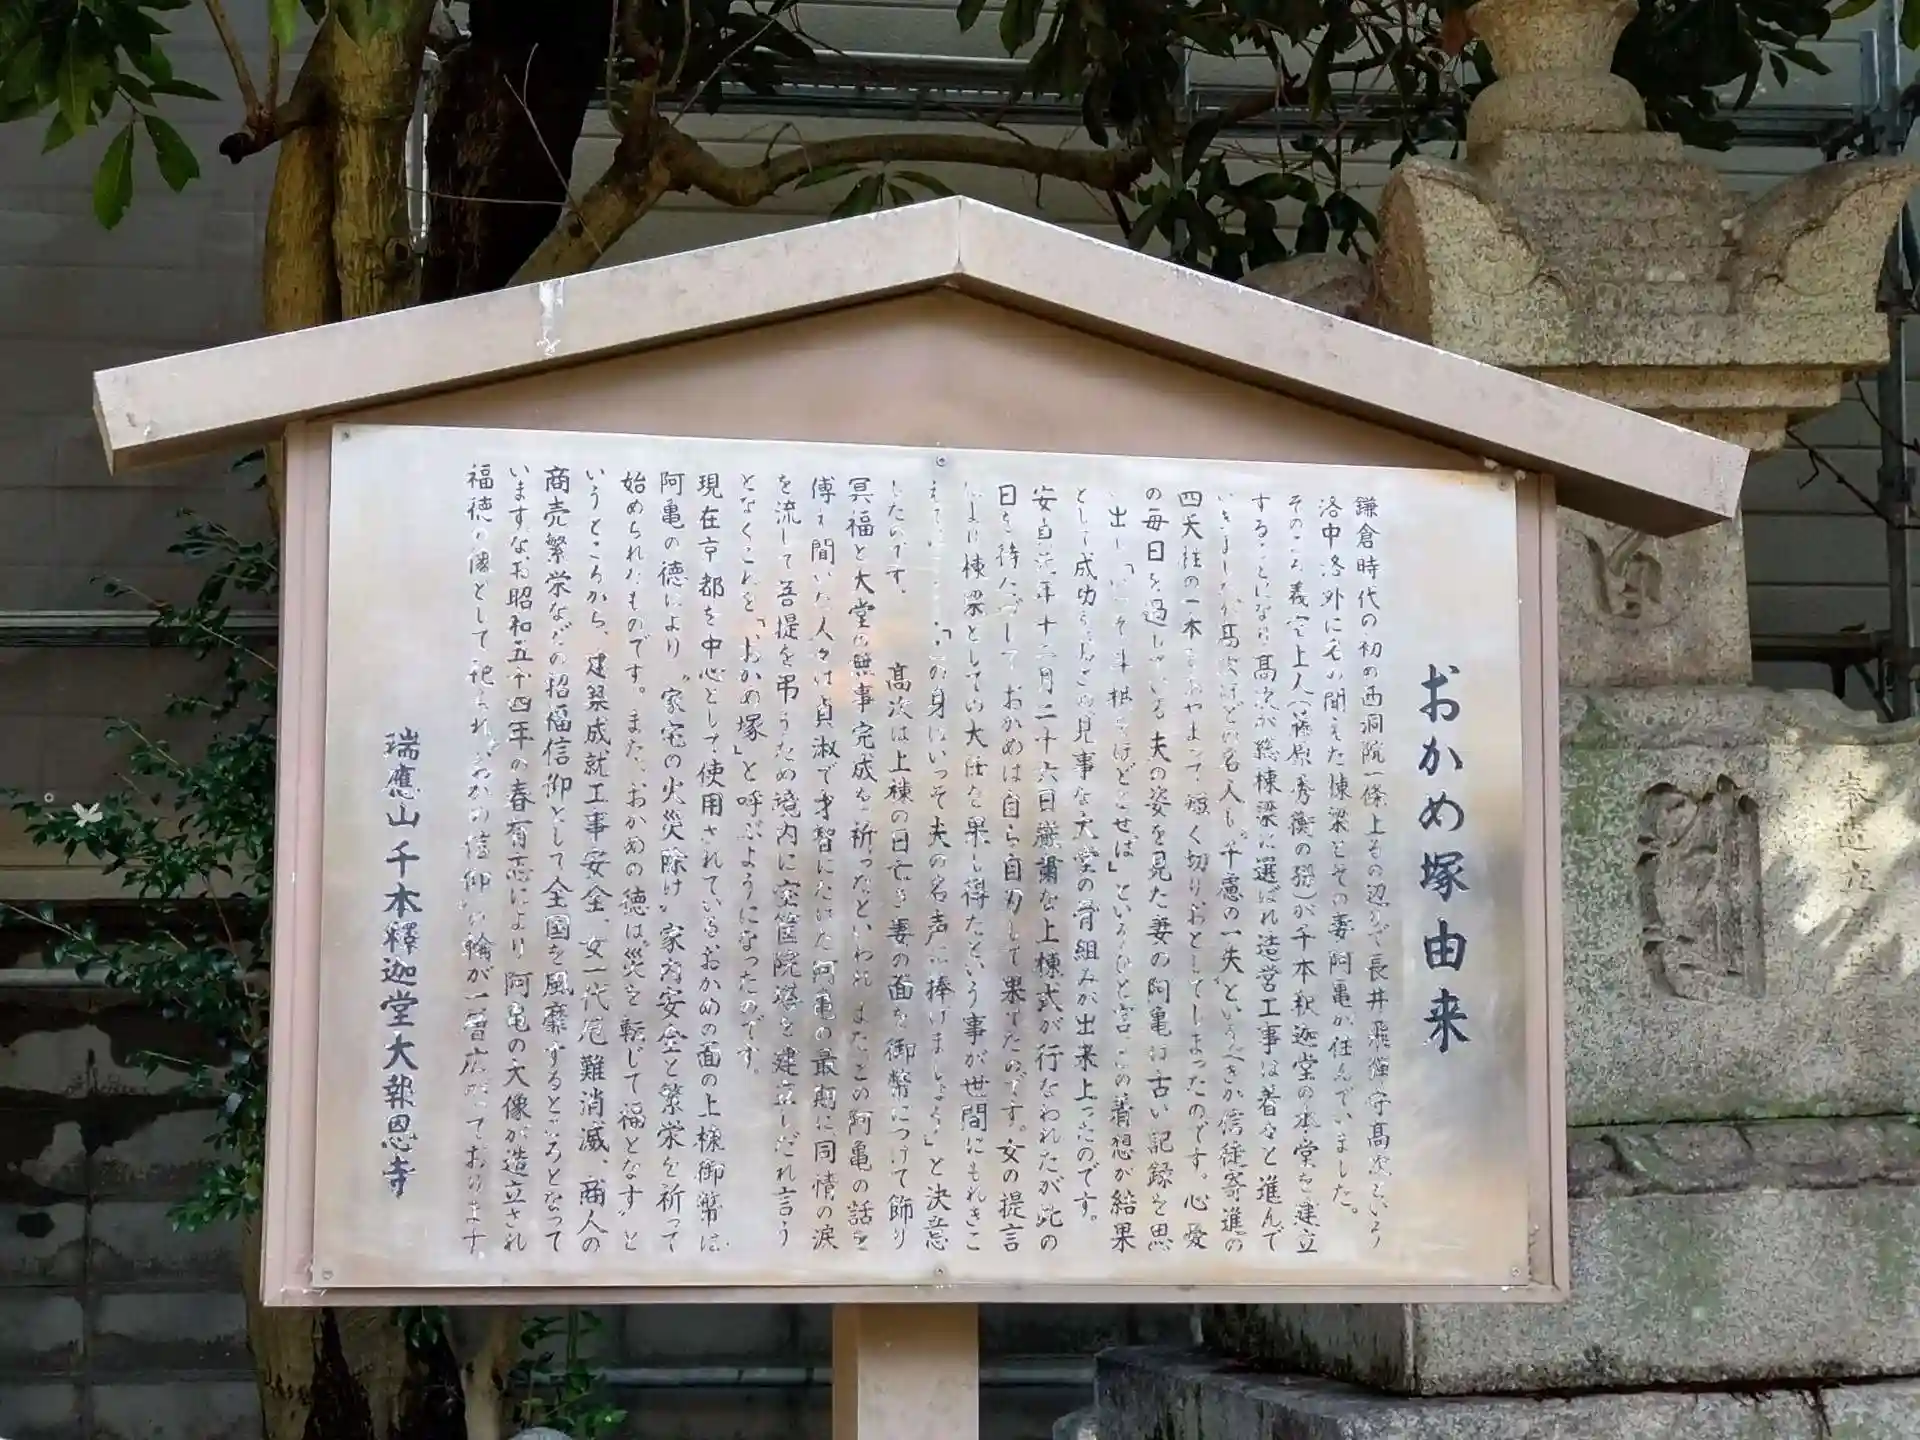 おかめ塚由来
鎌倉時代の初め西洞院一條上るの辺りで長井飛騨守高次という
洛中洛外にその聞えた棟梁とその妻阿亀が住んでいました。
そのころ義空上人(藤原秀衡の孫)が千本釈迦堂の本堂を建立
することになり高次が総棟梁に選ばれ造営工事は着々と進んで
いきましたが高次ほどの名人も"千慮の一失"というべきか信徒寄進の
四天柱の一本をあやまって短く切りおとしてしまったのです。心憂
の毎日を過している夫の姿を見た妻の阿亀は古い記録を思
い出し「いっそ斗栱をほどこせば」というひと言、この着想が結果
として成功し見事な大堂の骨組みが出来上ったのです。
安貞元年十二月二十六日厳粛な上棟式が行なわれたが此の
日を待たずして、おかめは自ら自刃して果てたのです。女の提言
により棟梁としての大任を果し得たという事が世間にもれきこ
「この身はいっそ夫の名声に捧げましょう」と決意
したのです。高次は上棟の日亡き妻の面を御幣につけて飾り
冥福と大堂の無事完成を祈ったといわれ、またこの阿亀の話を
傳え聞いた人々は貞淑で才智にたけた阿亀の最期に同情の涙
を流して菩提を弔うため境内に宝筐院塔を建立しだれ言う
となくこれを「おかめ塚」と呼ぶようになったのです。
現在京都を中心として使用されているおかめの面の上棟御幣は
阿亀の徳により"家宅の火災除け"家内安全と繁栄を祈って
始められたものです。また、おかめの徳は"災を転じて福となす"と
いうところから、建築成就工事安全、女一代厄難消滅、商人の
商売繁栄などの招福信仰として全国を風靡するところとなって
いますなお昭和五十四年の春有志により阿亀の大像が造立され
福徳の像として祀られ"おかめ信仰"の輪が一層広がっております
瑞應山千本釋迦堂大報恩寺